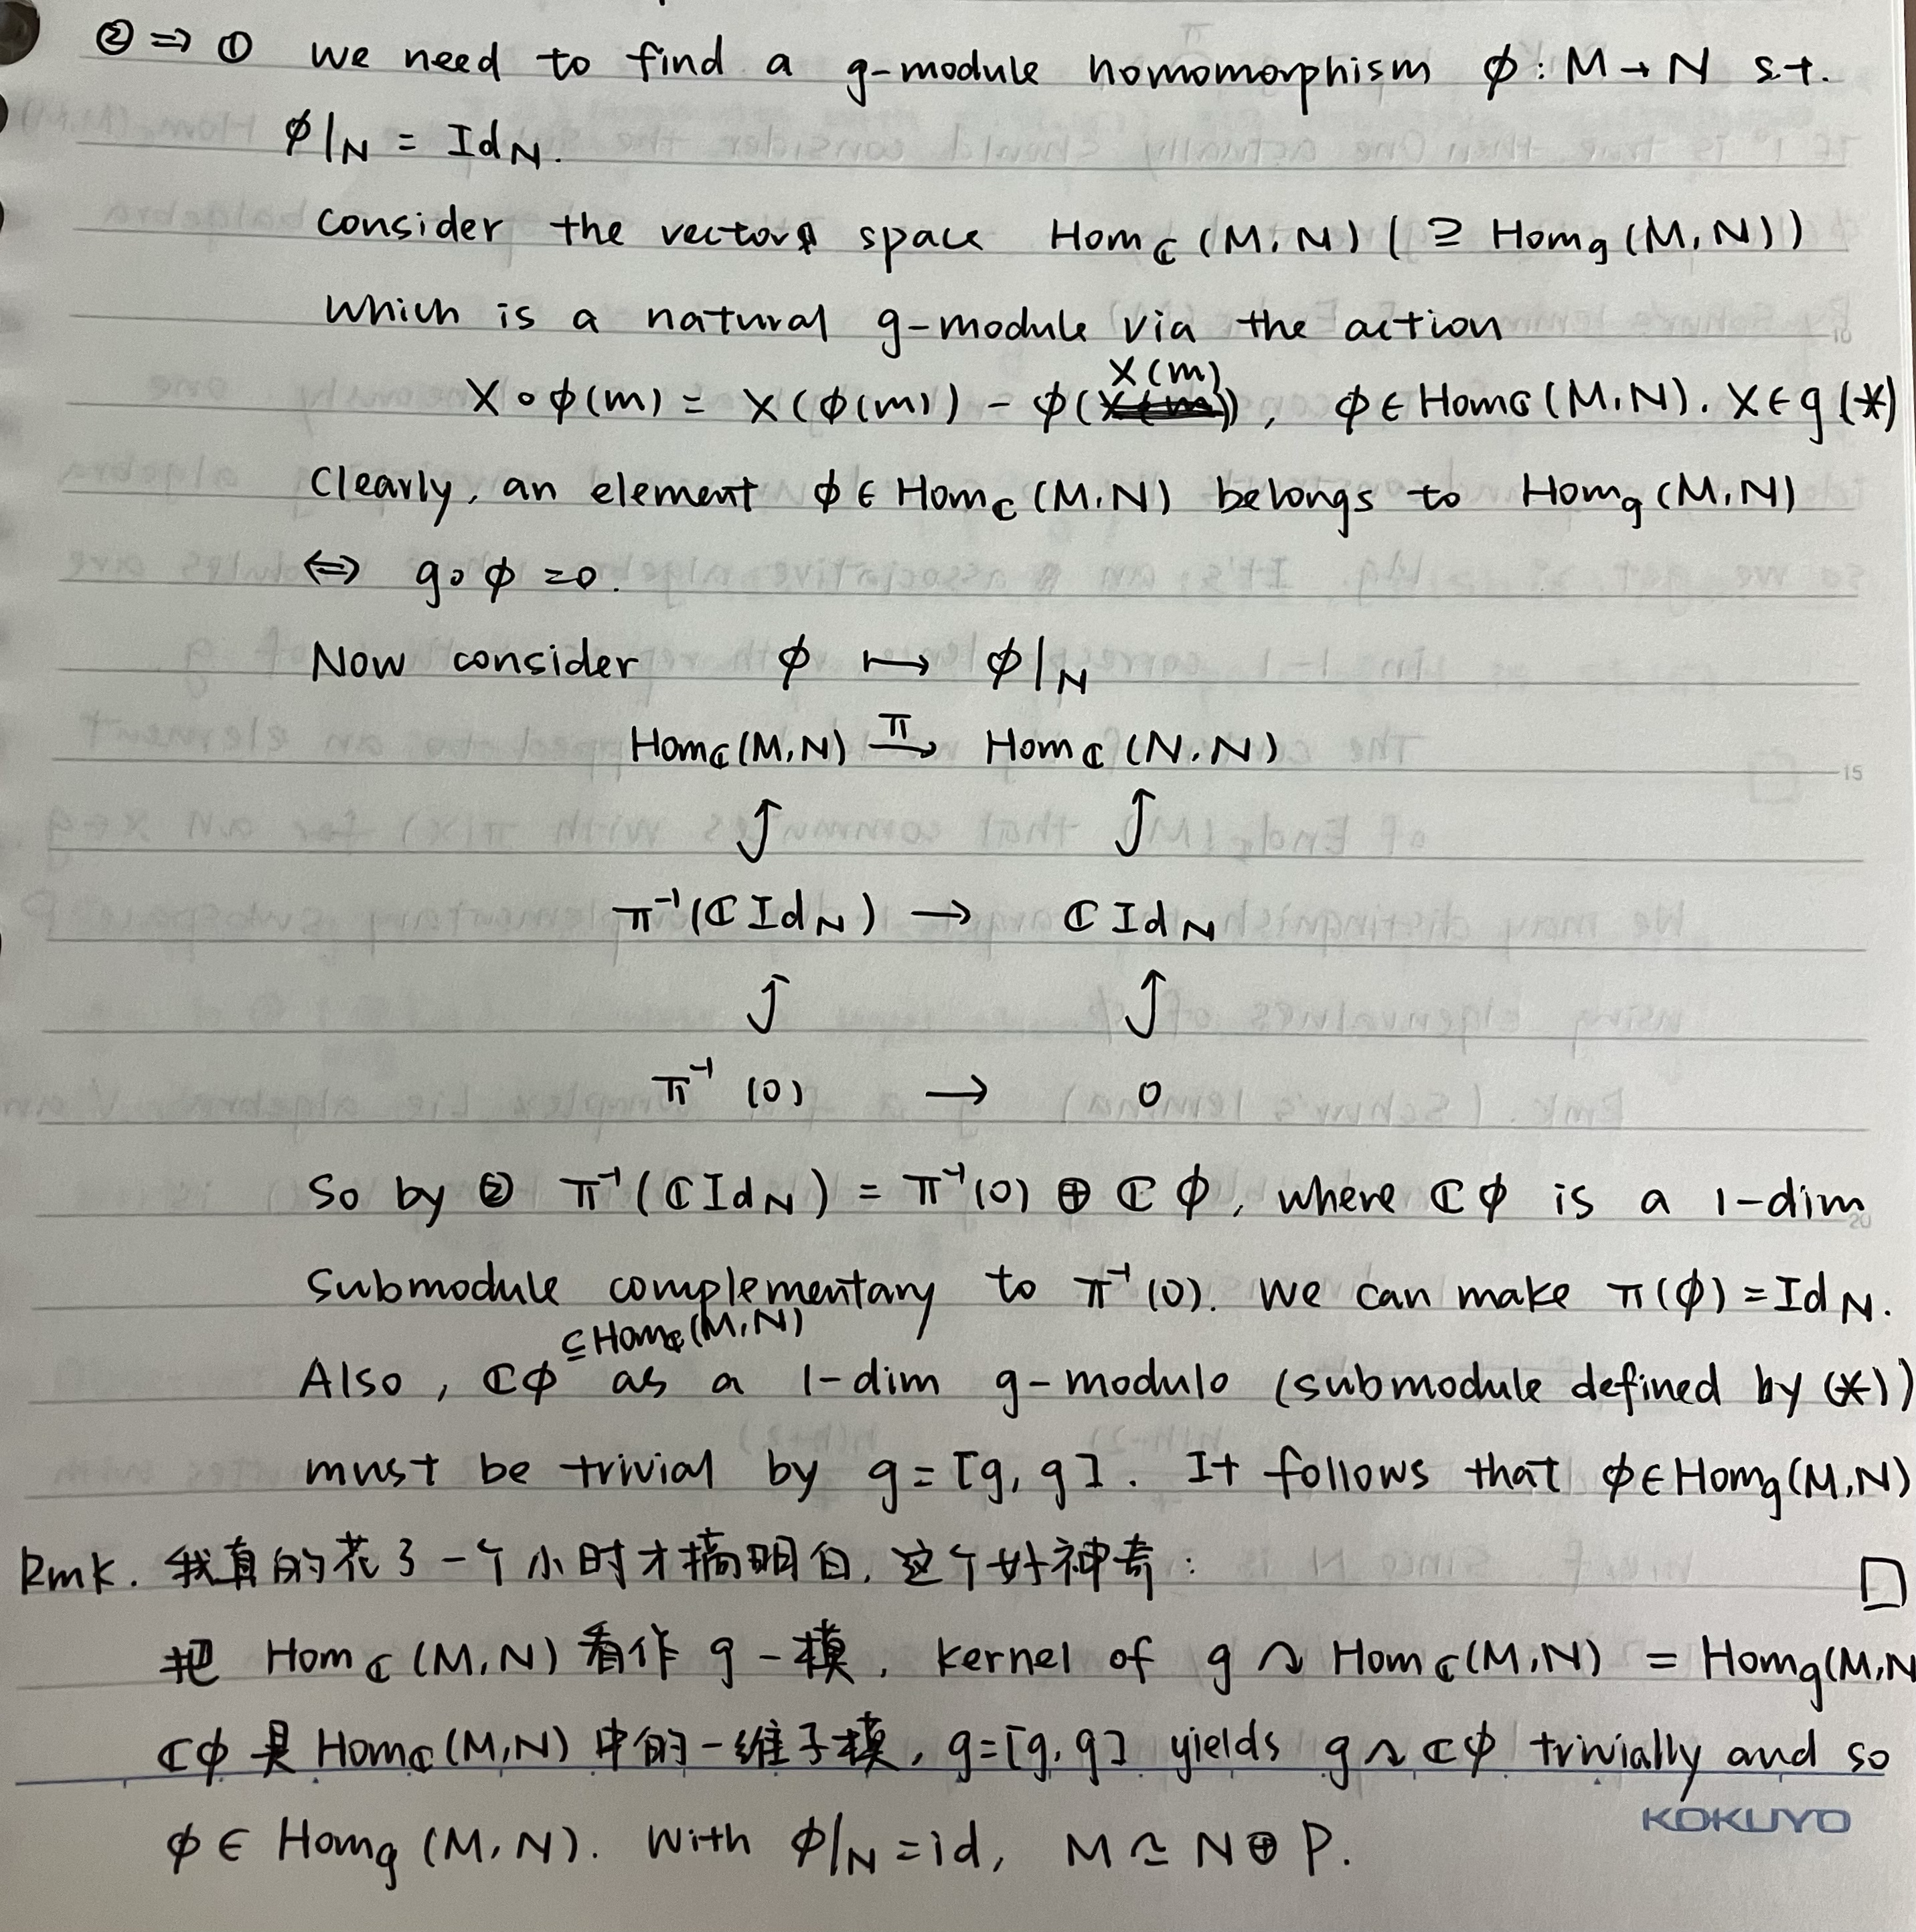 ② ⇒ ① we need to find a g-module homomorphism ϕ : M → N s.t.
ϕ|N = IdN.
consider the vector space Homℂ (M,N) ( ⊇ Homg (M,N))
which is a natural g-module via the action
X∘ϕ(m) = X(ϕ(m)) - ϕ(X(m)), ϕ ∈ Homℂ(M,N). X∈g (*)
Clearly, an element ϕ ∈ Homℂ (M,N) belongs to Homg (M,N)
⇔ g∘ϕ =0.
Now consider ϕ ↦ ϕ|N
Homℂ(M,N) →π Homℂ (N,N)
π⁻¹(ℂ IdN) → ℂ IdN
π⁻¹ (0) → 0
So by ② π⁻¹(ℂIdN) = π⁻¹(0) ⊕ ℂϕ, where ℂϕ is a 1-dim
submodule complementary to π⁻¹(0). We can make π(ϕ)=IdN.
⊆Homℂ(M,N)
Also, ℂϕ as a 1-dim g-modulo (submodule defined by (*))
must be trivial by g=[g,g]. It follows that ϕ∈Homg(M,N)
Rmk. 我真的花了一个小时才搞明白, 这个好神奇: □
把 Homℂ (M,N) 看作 g-模, kernel of g ↷ Homℂ(M,N) = Homg(M,N
ℂϕ 是 Homℂ(M,N) 中的一维子模, g=[g,g] yields g↷ℂϕ trivially and so
KOKUYO
ϕ∈ Homg (M,N). With ϕ|N=id, M ≃ N⊕P.